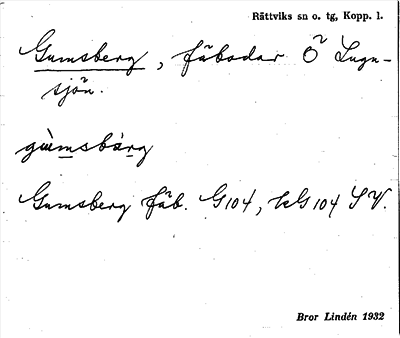 Rättviks sn o. tg, Kopp. l.
Gumsberg, fäbodar Ö Lugn-
sjön.
gùmsbàrg
Gumsberg fäb. G104, kG104 SV.
Bror Lindén 1932